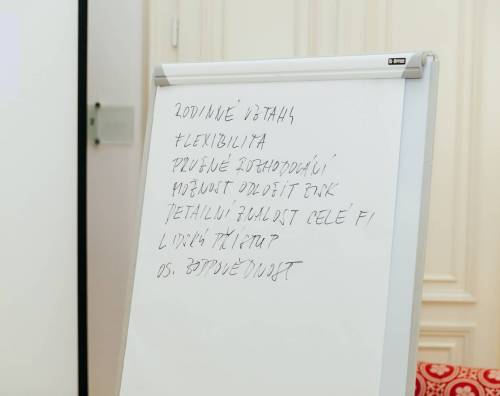 RODINNÉ VZTAHY
FLEXIBILITA
PRUŽNÉ ROZHODOVÁNÍ
MOŽNOST ODLOŽIT ZISK
DETAILNÍ ZNALOST CELÉ FI
LIDSKÝ PŘÍSTUP
OS. ZODPOVĚDNOST